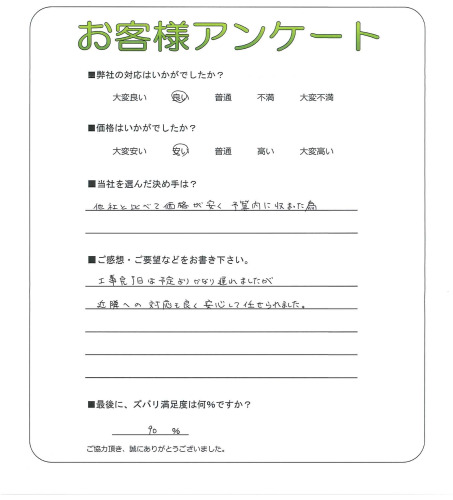 お客様アンケート
■弊社の対応はいかがでしたか？
大変良い 良い 普通 不満 大変不満
■価格はいかがでしたか？
大変安い 安い 普通 高い 大変高い
■当社を選んだ決め手は？
他社と比べて価格が安く 予算内に収まった為
■ご感想・ご要望などをお書き下さい。
工事完了日は予定よりかなり遅れましたが
近隣への対応も良く安心して任せられました。
■最後に、ズバリ満足度は何%ですか？
90 %
ご協力頂き、誠にありがとうございました。